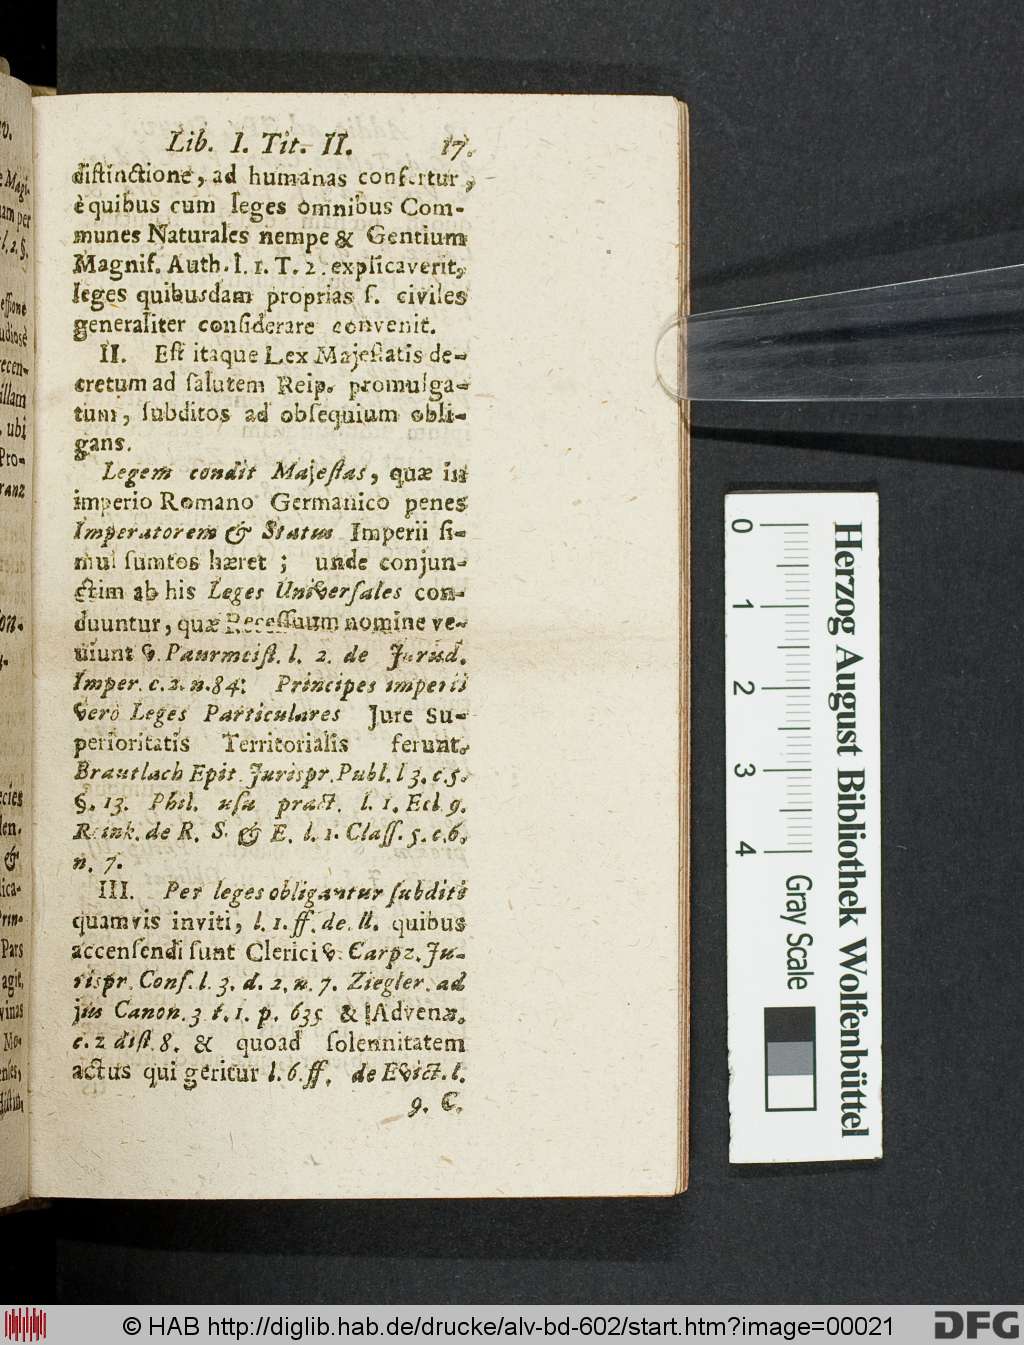 Lib. I. Tit. II. 17.
distinctione, ad humanas confertur,
è quibus cum leges omnibus Com-
munes Naturales nempe & Gentium
Magnif. Auth. l. 1. T. 2. explicaverit,
leges quibusdam proprias s. civiles
generaliter considerare convenit.
II. Est itaque Lex Majestatis de-
cretum ad salutem Reip. promulga-
tum, subditos ad obsequium obli-
gans.
Legem condit Majestas, quæ in
imperio Romano Germanico penes
Imperatorem & Status Imperii si-
mul sumtos hæret ; unde conjun-
ctim ab his Leges Universales con-
duuntur, quæ Recessuum nomine ve-
niunt v. Paurmeist. l. 2. de Jurisd.
Imper. c. 2. n. 84: Principes imperii
verò Leges Particulares Jure Su-
perioritatis Territorialis ferunt.
Brautlach Epit. Jurispr. Publ. l 3. c. 5.
§. 13. Phil. usu pract. l. 1. Ecl. 9.
Reink. de R. S. & E. l. 1. Class. 5. c. 6.
n. 7.
III. Per leges obligantur subditi
quamvis inviti, l. 1. ff. de ll. quibus
accensendi sunt Clerici v. Carpz. Ju-
rispr. Cons. l. 3. d. 2. n. 7. Ziegler. ad
jus Canon. 3 t. 1. p. 635 & Advenæ.
c. 2 dist. 8. & quoad solennitatem
actus qui geritur l. 6. ff. de Evict. l.
9. C.
0 1 2 3 4
Gray Scale
Herzog August Bibliothek Wolfenbüttel
© HAB http://diglib.hab.de/drucke/alv-bd-602/start.htm?image=00021
DFG